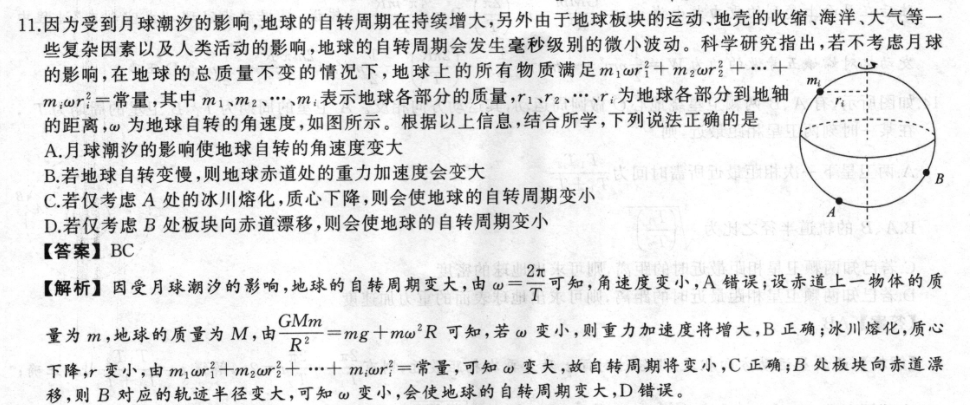 11.因为受到月球潮汐的影响,地球的自转周期在持续增大,另外由于地球板块的运动、地壳的收缩、海洋、大气等一
些复杂因素以及人类活动的影响,地球的自转周期会发生毫秒级别的微小波动。科学研究指出,若不考虑月球
的影响,在地球的总质量不变的情况下,地球上的所有物质满足 m₁ωr₁²+m₂ωr₂²+…+
mᵢωrᵢ²=常量,其中 m₁、m₂、…、mᵢ 表示地球各部分的质量,r₁、r₂、…、rᵢ 为地球各部分到地轴
的距离,ω 为地球自转的角速度,如图所示。根据以上信息,结合所学,下列说法正确的是
A.月球潮汐的影响使地球自转的角速度变大
B.若地球自转变慢,则地球赤道处的重力加速度会变大
C.若仅考虑 A 处的冰川熔化,质心下降,则会使地球的自转周期变小
D.若仅考虑 B 处板块向赤道漂移,则会使地球的自转周期变小
mᵢ
B
A
【答案】BC
【解析】因受月球潮汐的影响,地球的自转周期变大,由 ω=2π/T 可知,角速度变小,A 错误;设赤道上一物体的质
量为 m,地球的质量为 M,由 GMm/R²=mg+mω²R 可知,若 ω 变小,则重力加速度将增大,B 正确;冰川熔化,质心
下降,r 变小,由 m₁ωr₁²+m₂ωr₂²+ …+ mᵢωrᵢ²=常量,可知 ω 变大,故自转周期将变小,C 正确;B 处板块向赤道漂
移,则 B 对应的轨迹半径变大,可知 ω 变小,会使地球的自转周期变大,D 错误。